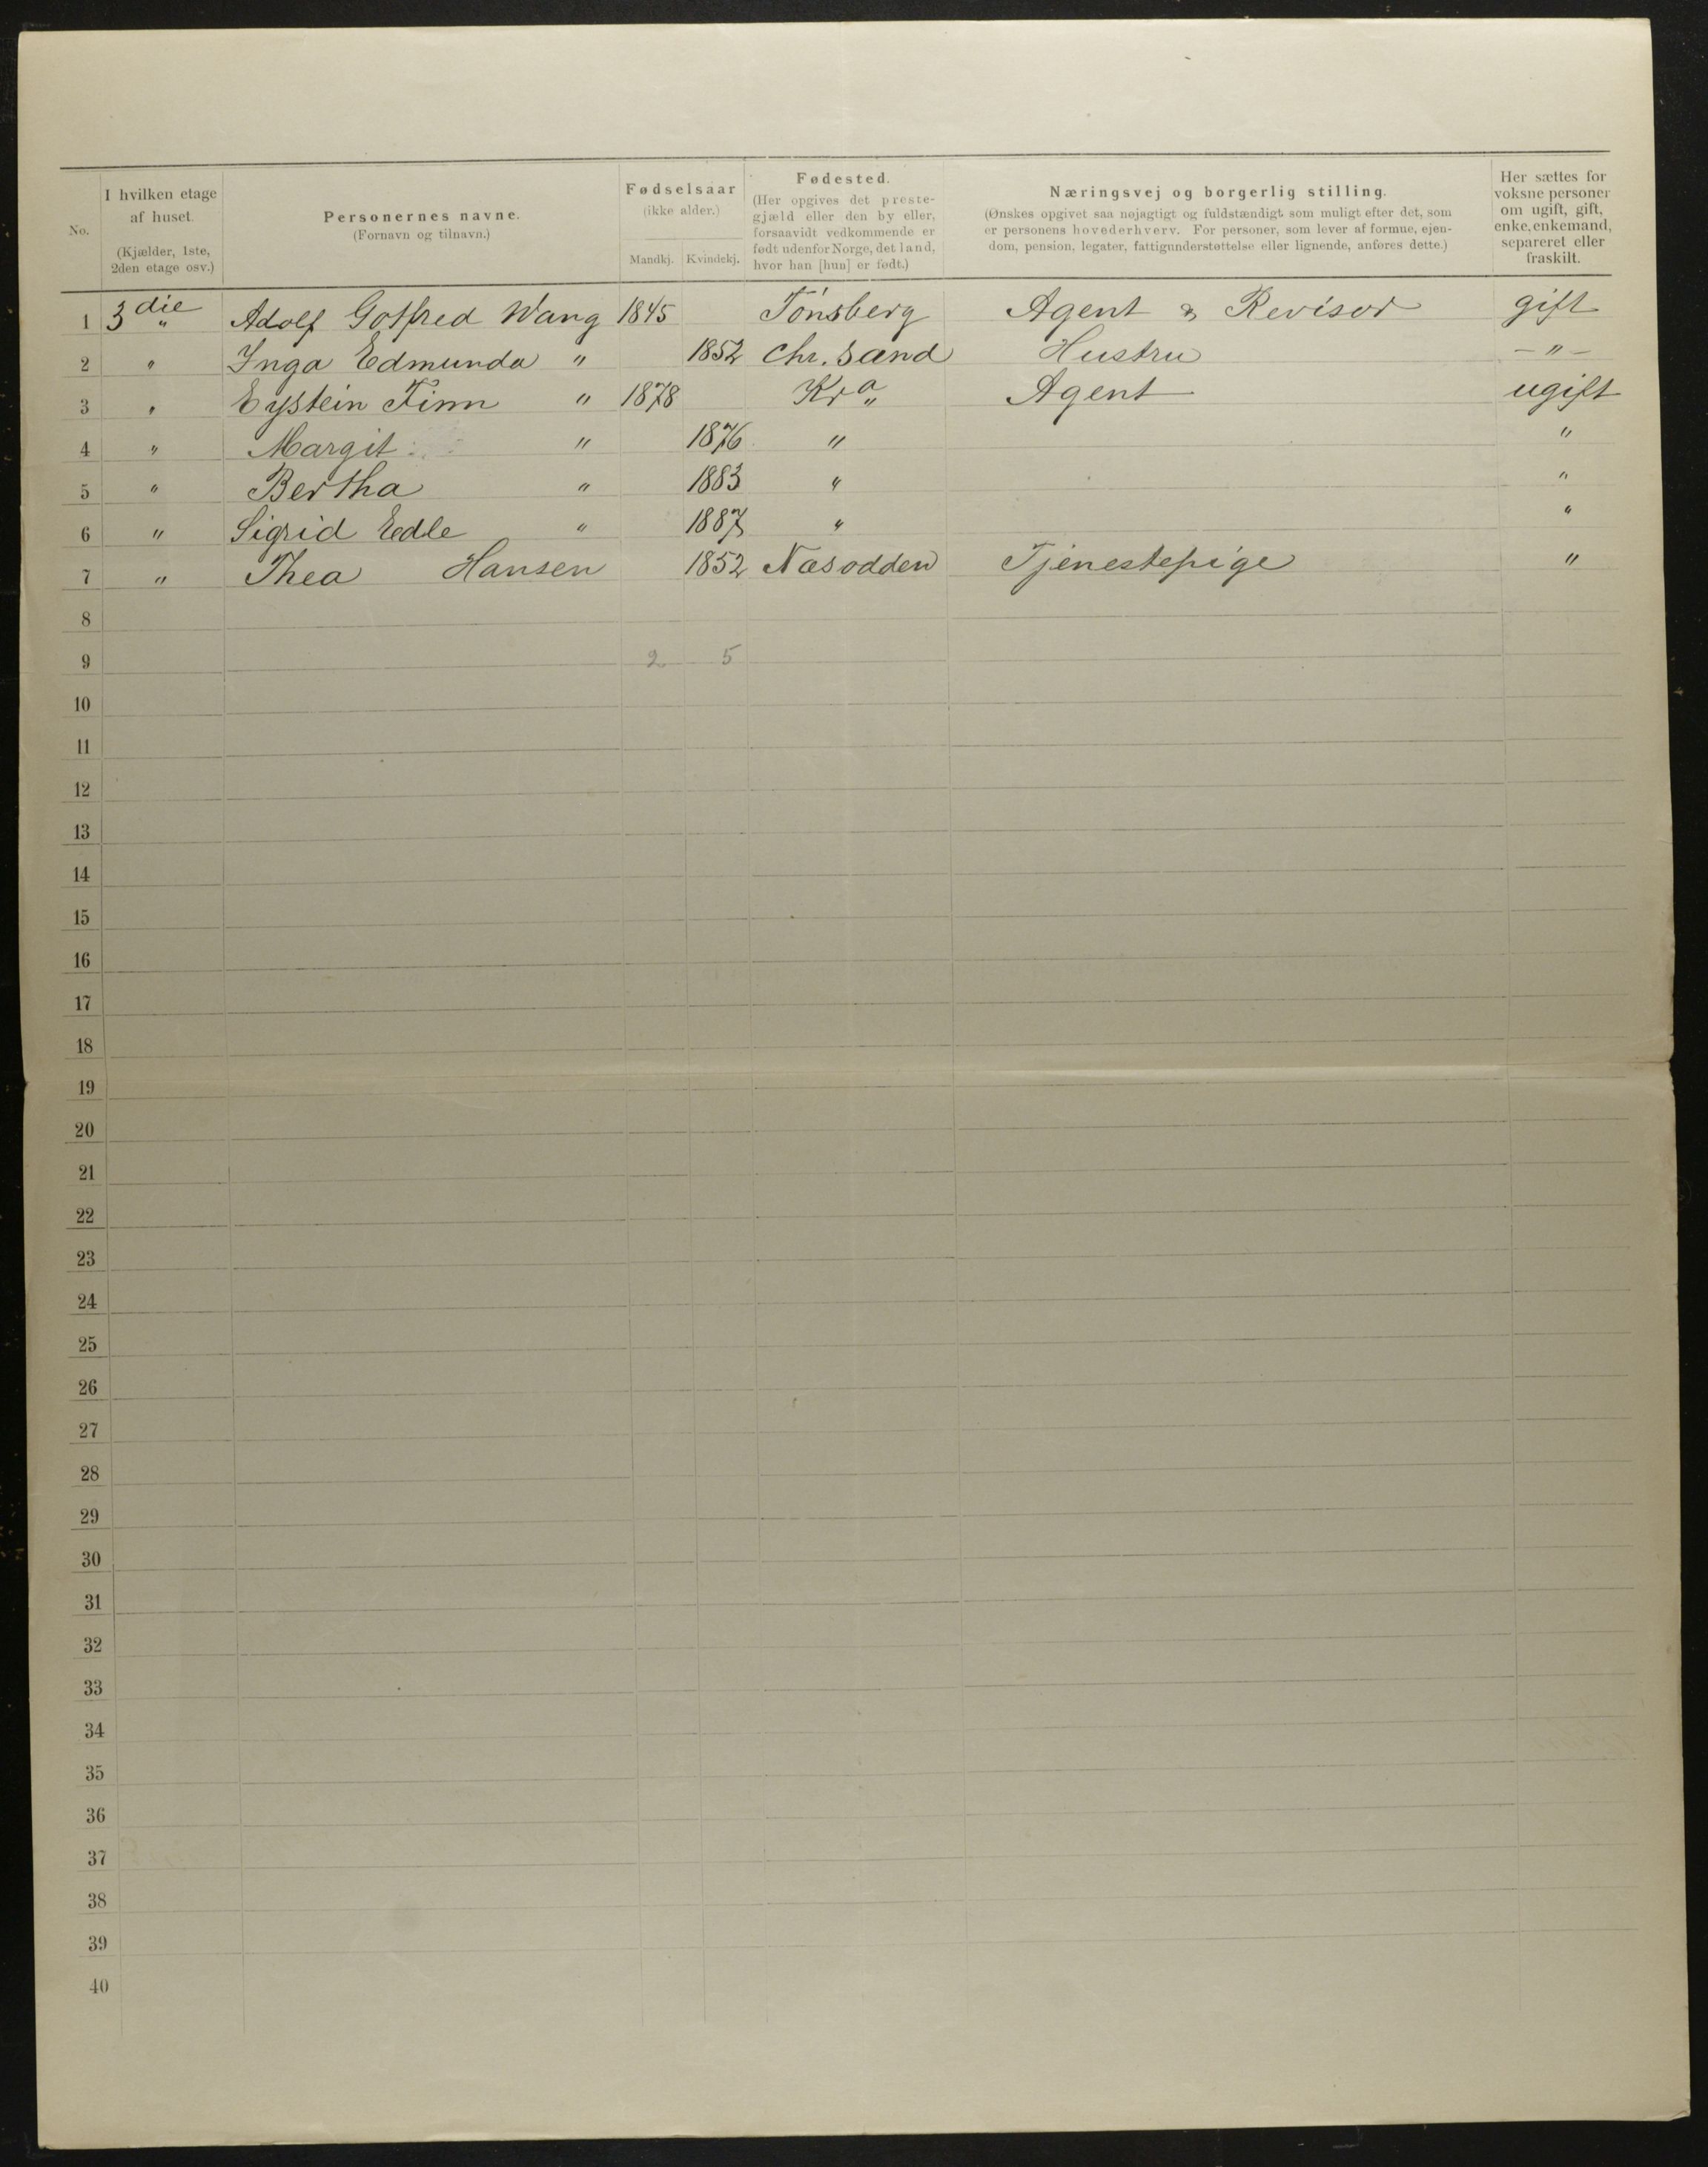 No.
I hvilken etage af huset.
(Kjælder, 1ste, 2den etage osv.)
Personernes navne.
(Fornavn og tilnavn.)
Fødselsaar
(ikke alder.)
Mandkj. Kvindekj.
Fødested.
(Her opgives det prestegjæld eller den by eller, forsaavidt vedkommende er født udenfor Norge, det land, hvor han [hun] er født.)
Næringsvej og borgerlig stilling.
(Ønskes opgivet saa nøjagtigt og fuldstændigt som muligt efter det, som er personens hovederhverv. For personer, som lever af formue, ejendom, pension, legater, fattigunderstøttelse eller lignende, anføres dette.)
Her sættes for voksne personer om ugift, gift, enke, enkemand, separeret eller fraskilt.
1 3die " Adolf Gotfred Wang 1845 Tönsberg Agent & Revisor gift
2 " Inga Edmunda " 1852 Chr.sand Hustru - " -
3 " Eystein Finn " 1878 Kra " Agent ugift
4 " Margit " 1876 " "
5 " Bertha " 1883 " "
6 " Sigrid Edle " 1887 " "
7 " Thea Hansen 1852 Næsodden Tjenestepige "
8
9 2 5
10
11
12
13
14
15
16
17
18
19
20
21
22
23
24
25
26
27
28
29
30
31
32
33
34
35
36
37
38
39
40